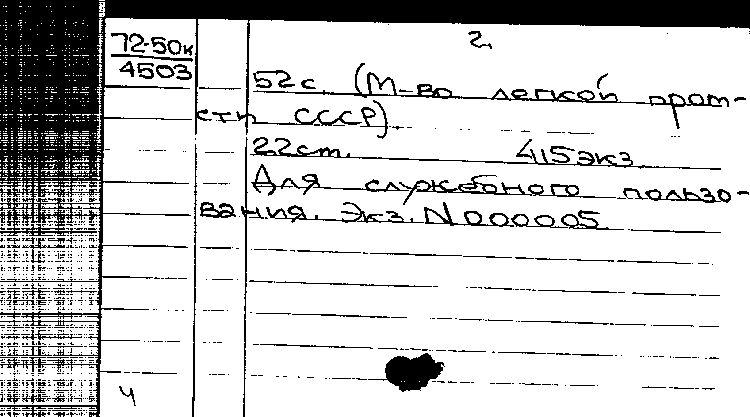 2.
72-50к
4503
52 с. (М-во легкой пром-
сти СССР).
22 см. 415 экз.
Для служебного пользо-
вания. Экз. N 000005
ч